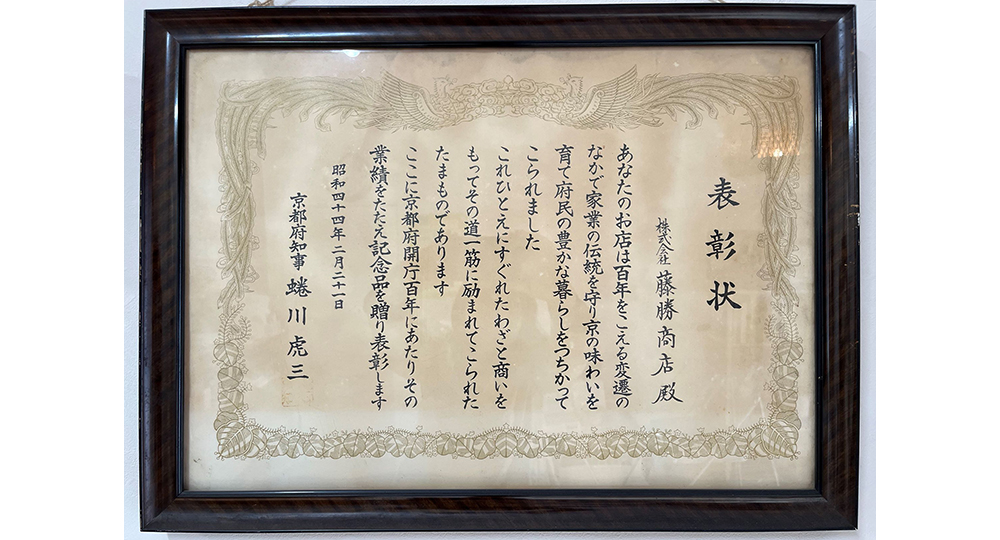 表彰状
株式会社 藤勝商店殿
あなたのお店は百年をこえる変遷の
なかで家業の伝統を守り京の味わいを
育て府民の豊かな暮らしをつちかって
こられました
これひとえにすぐれたわざと商いを
もってその道一筋に励まれてこられた
たまものであります
ここに京都府開庁百年にあたりその
業績をたたえ記念品を贈り表彰します
昭和四十四年二月二十一日
京都府知事 蜷川虎三